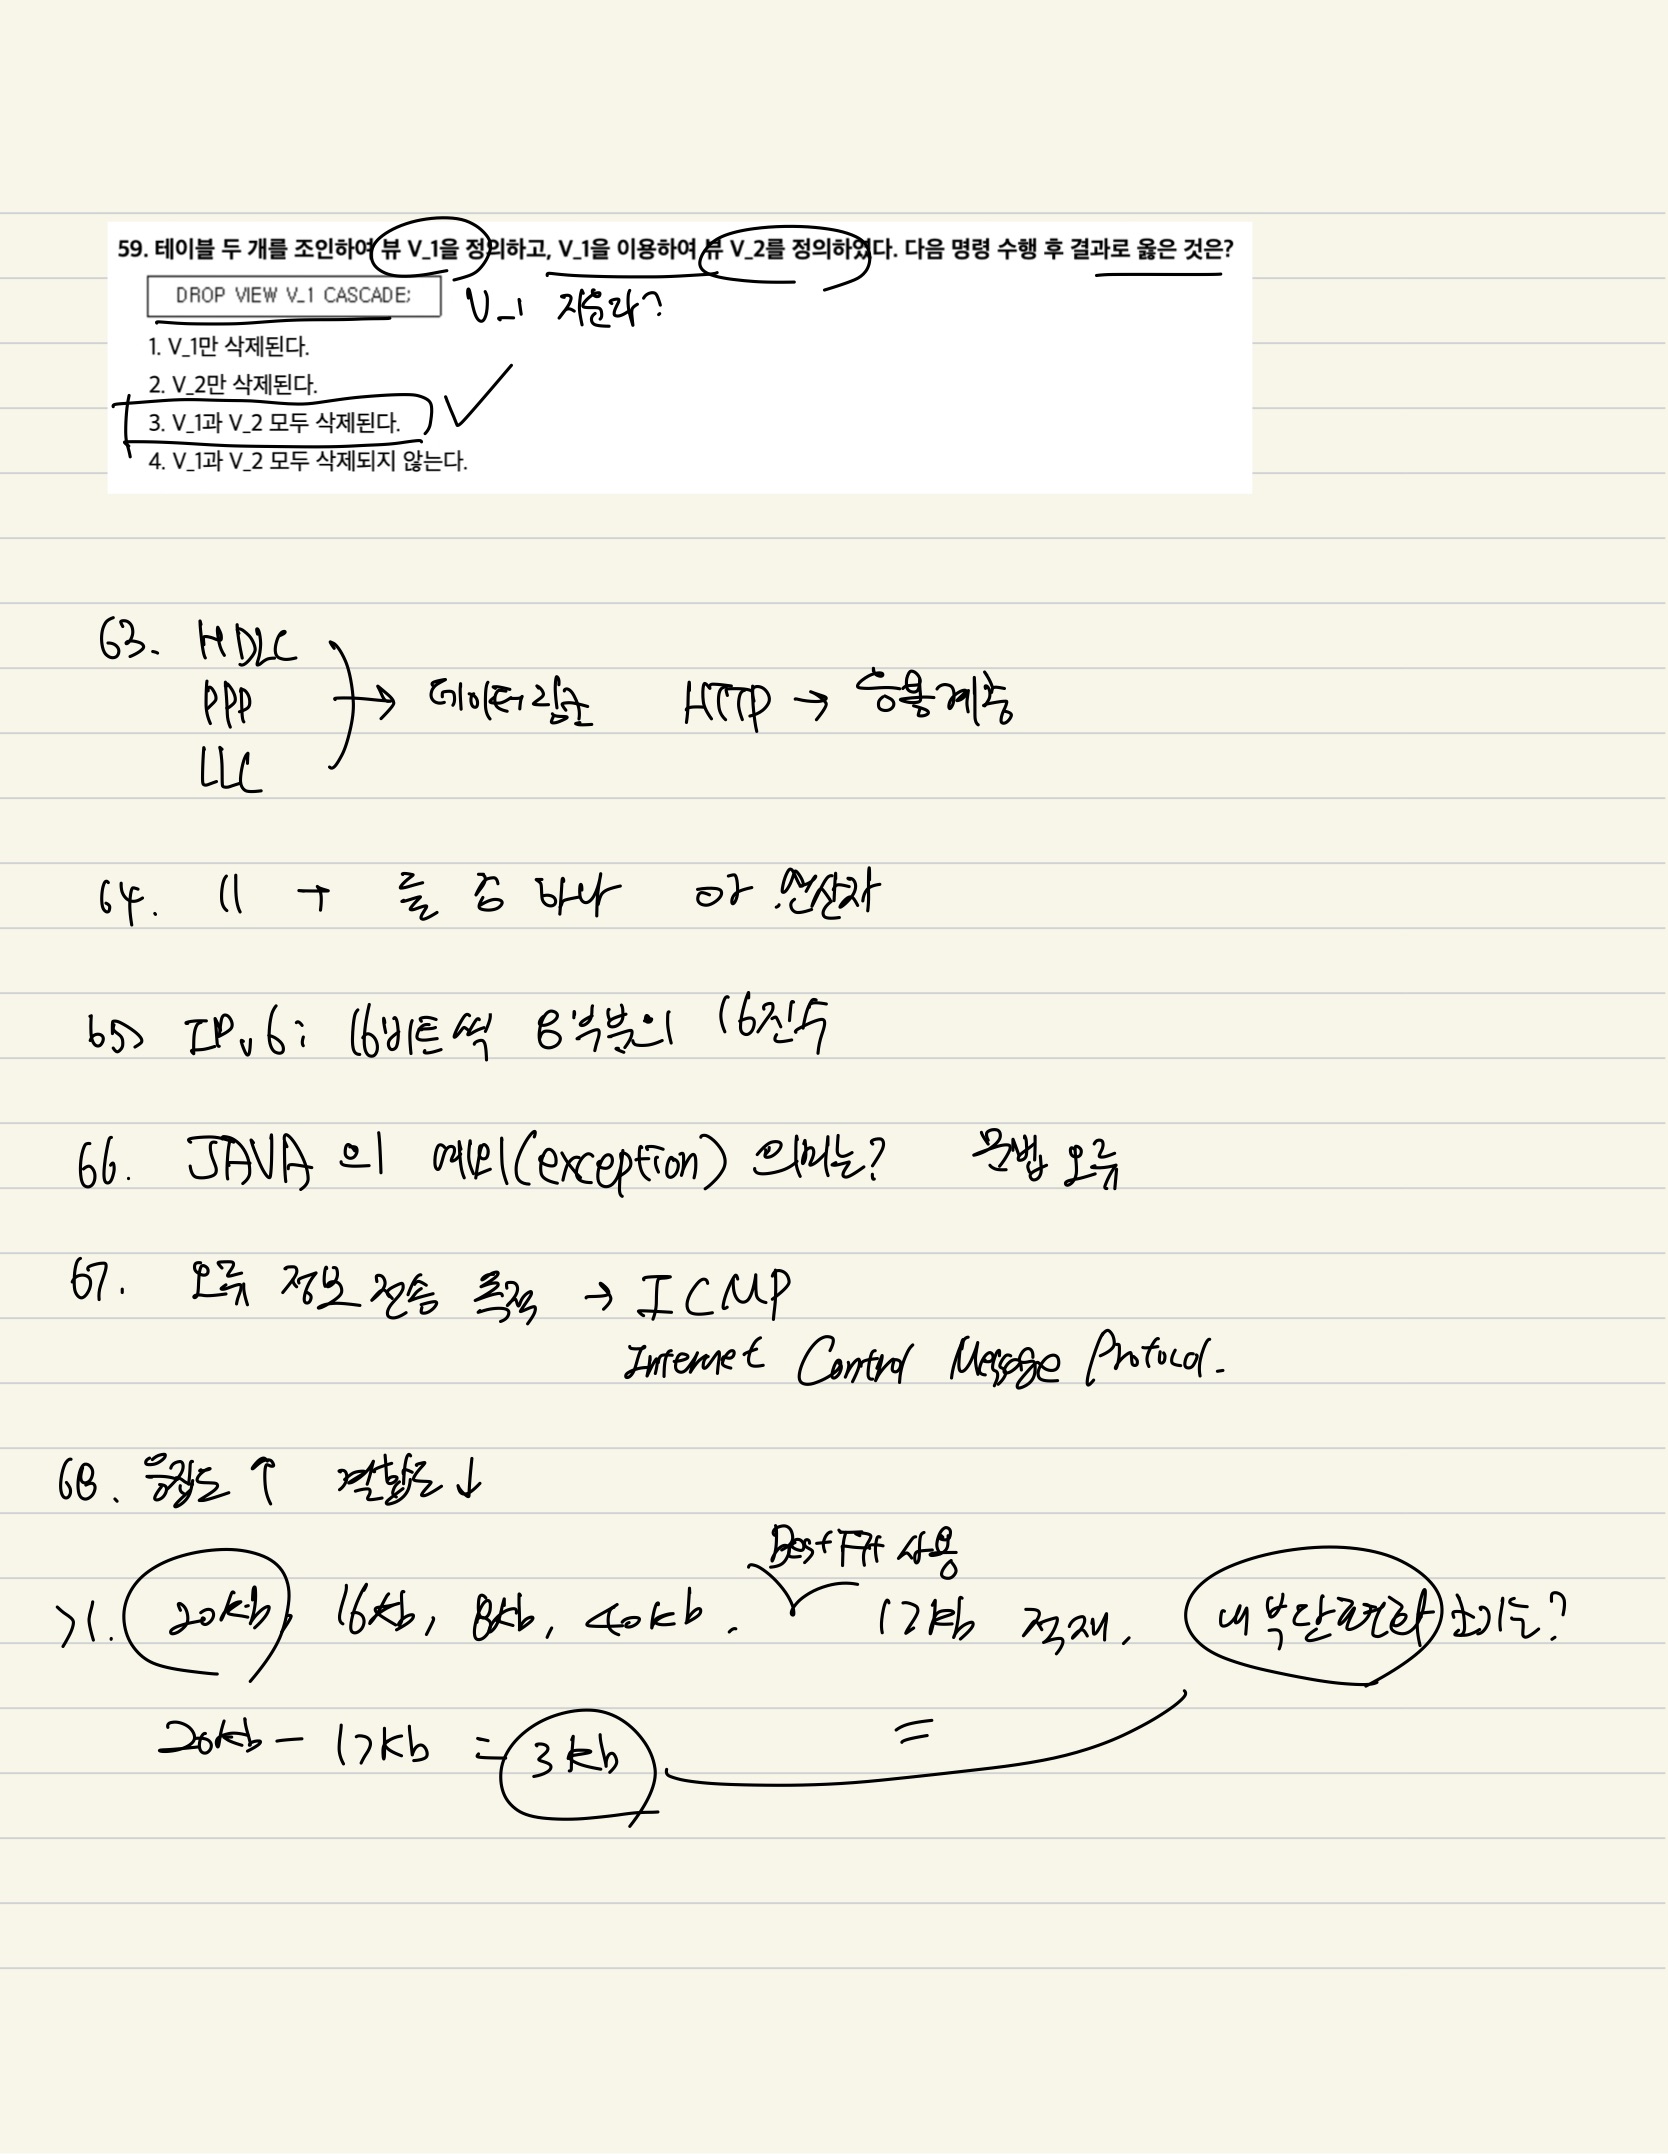 59. 테이블 두 개를 조인하여 뷰 V_1을 정의하고, V_1을 이용하여 뷰 V_2를 정의하였다. 다음 명령 수행 후 결과로 옳은 것은?
DROP VIEW V_1 CASCADE;
V_1 지운다?
1. V_1만 삭제된다.
2. V_2만 삭제된다.
3. V_1과 V_2 모두 삭제된다.
4. V_1과 V_2 모두 삭제되지 않는다.
63. HDLC
PPP → 데이터링크 HTTP → 응용계층
LLC
64. || → 둘 중 하나 or 연산자
65) IPv6: 16비트씩 8부분의 16진수
66. JAVA의 예외(exception) 의미는? 문법 오류
67. 오류 정보 전송 목적 → ICMP
Internet Control Message Protocol.
68. 응집도 ↑ 결합도 ↓
Best Fit 사용
71. 20kb, 16kb, 8kb, 40kb. 17kb 적재. 내부단편화 크기는?
20kb - 17kb = 3kb =